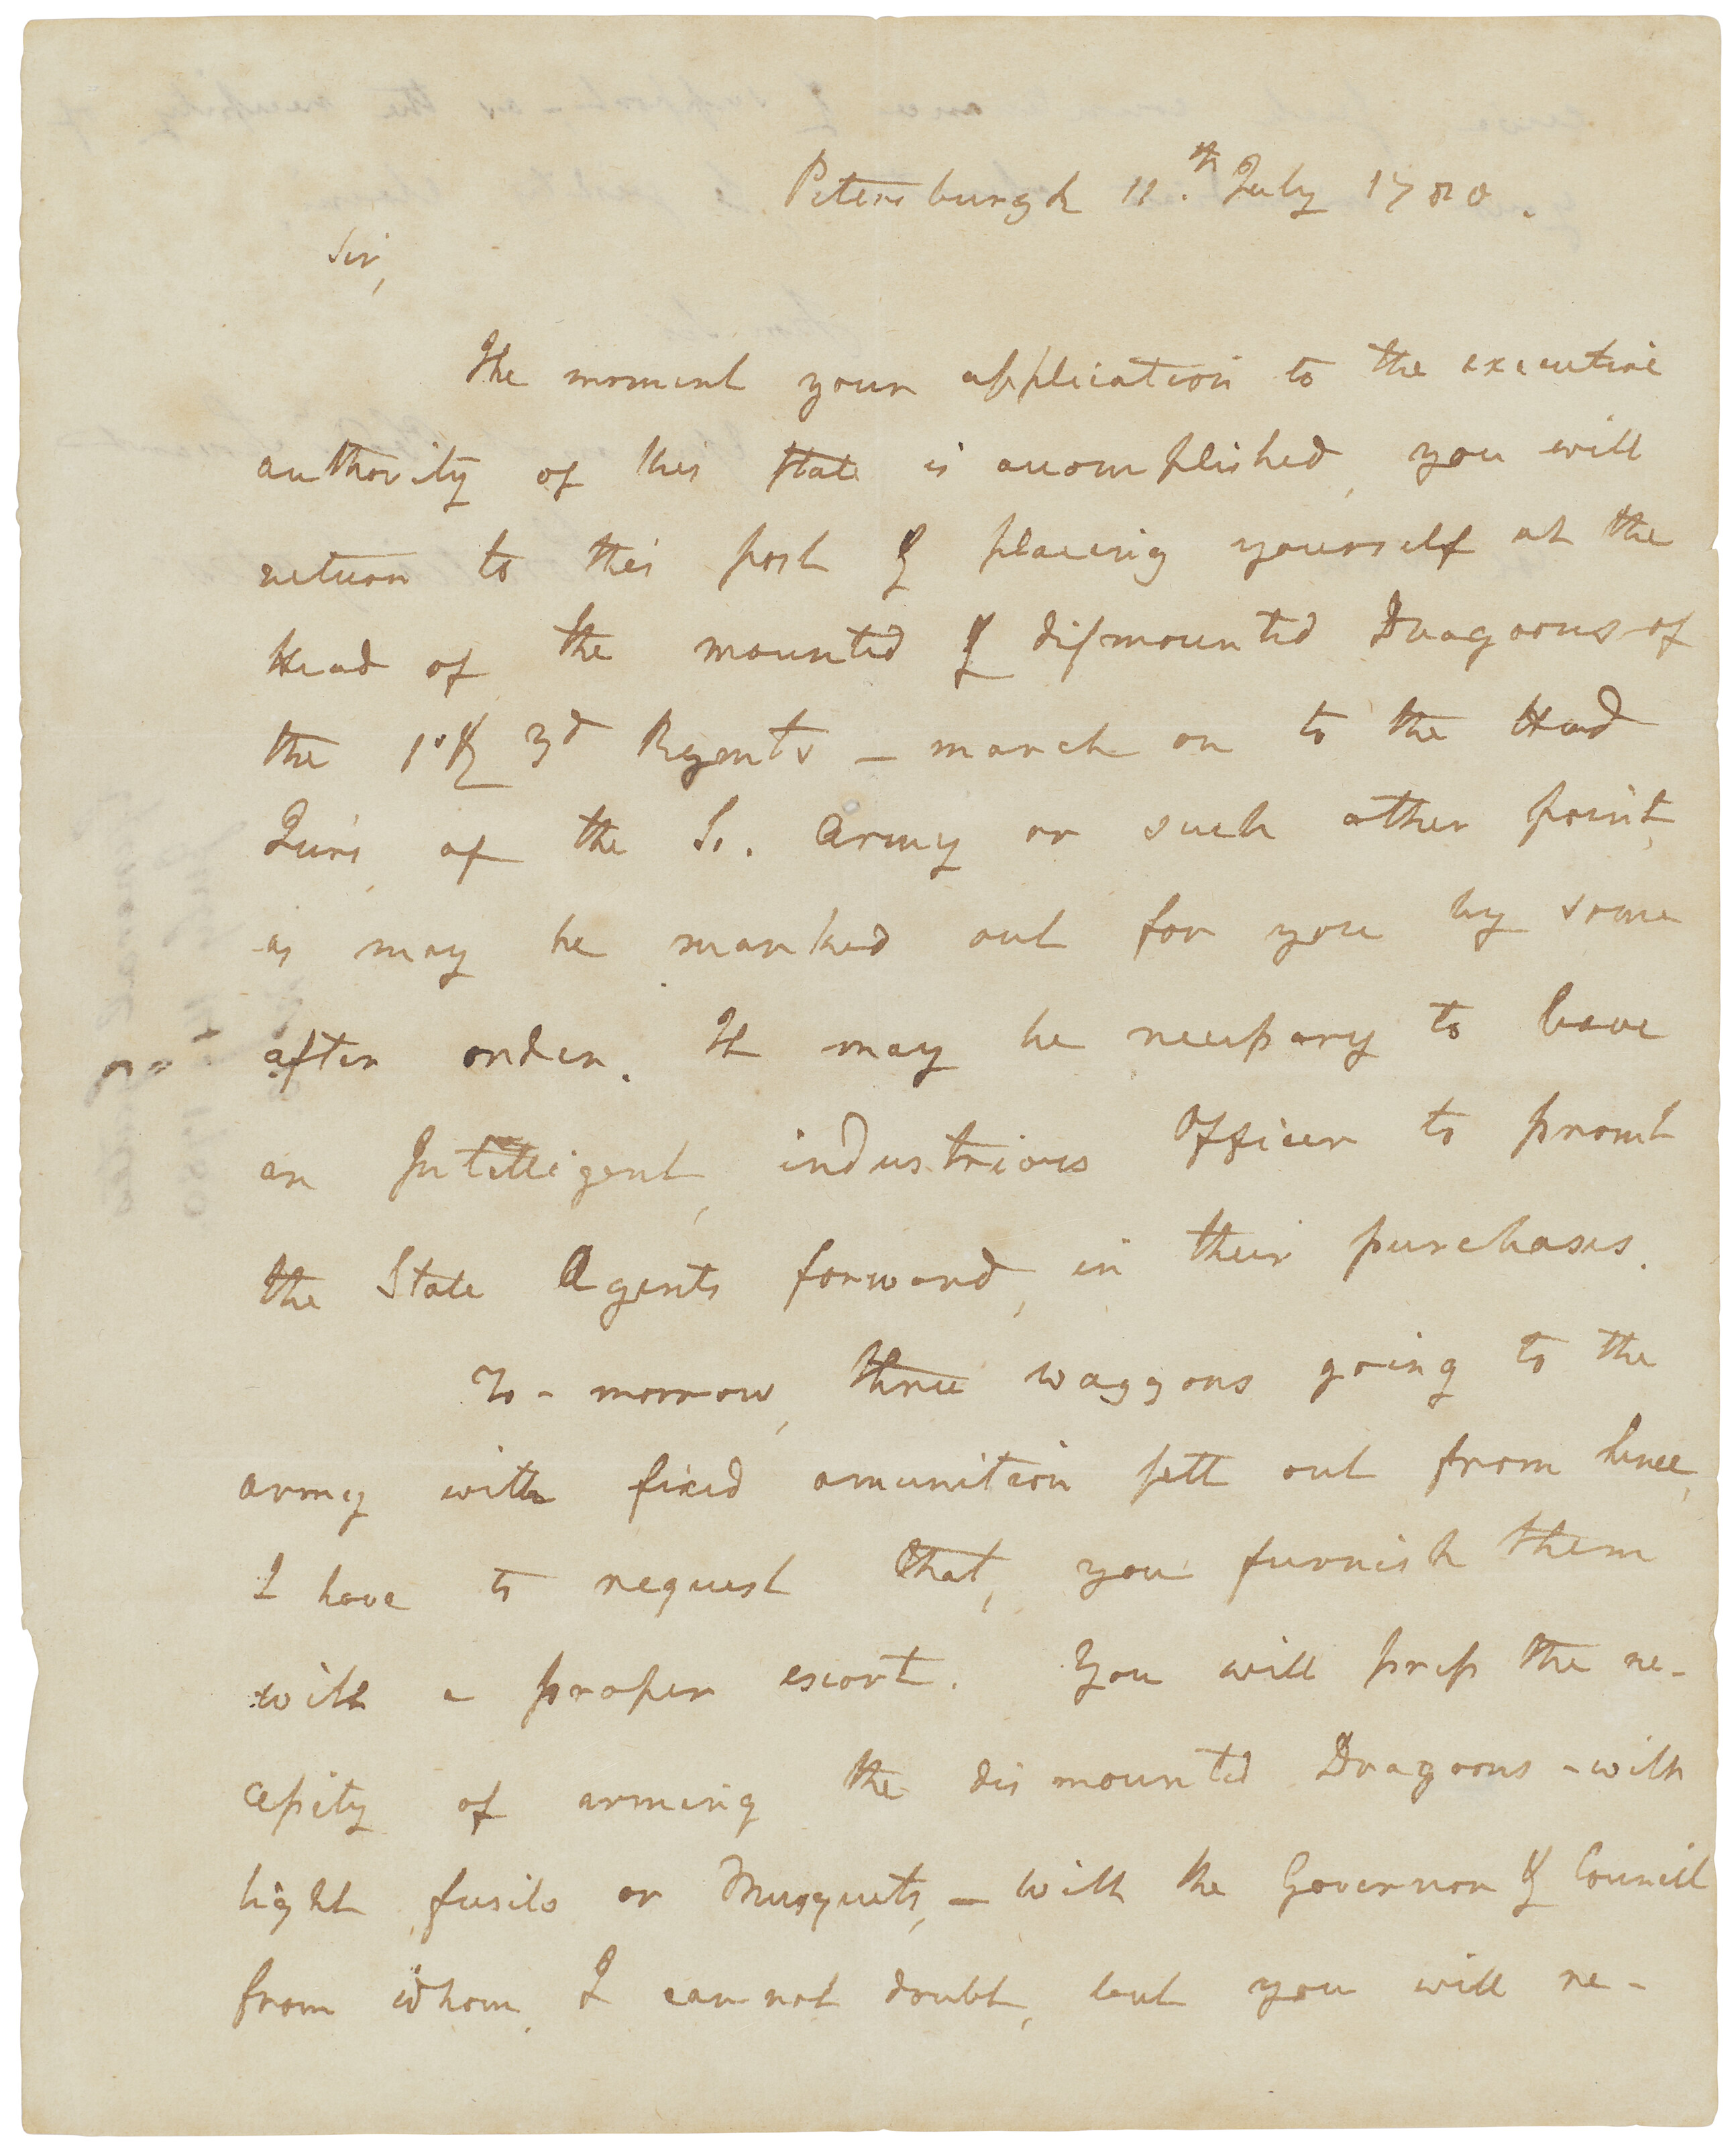 Petersburgh 11.th July 1780.
Sir,
The moment your application to the executive
authority of this state is accomplished, you will
return to this post & placing yourself at the
Head of the mounted & dismounted Dragoons of
the 1st & 3d Regmts – march on to the Head
Qurs, of the So. Army or such other point,
as may be marked out for you by some
after order. It may be necessary to leave
an Intelligent, industrious Officer to promt
the State Agents forward, in their purchases.
To-morrow, three waggons going to the
army with fixed amunition sett out from hence,
I have to request that, you furnish them
with a proper escort. You will press the ne-
cessity of arming the dismounted Dragoons – with
light fusils or Musquets, – with the Governor & Council
from whom, I cannot doubt, but you will re-